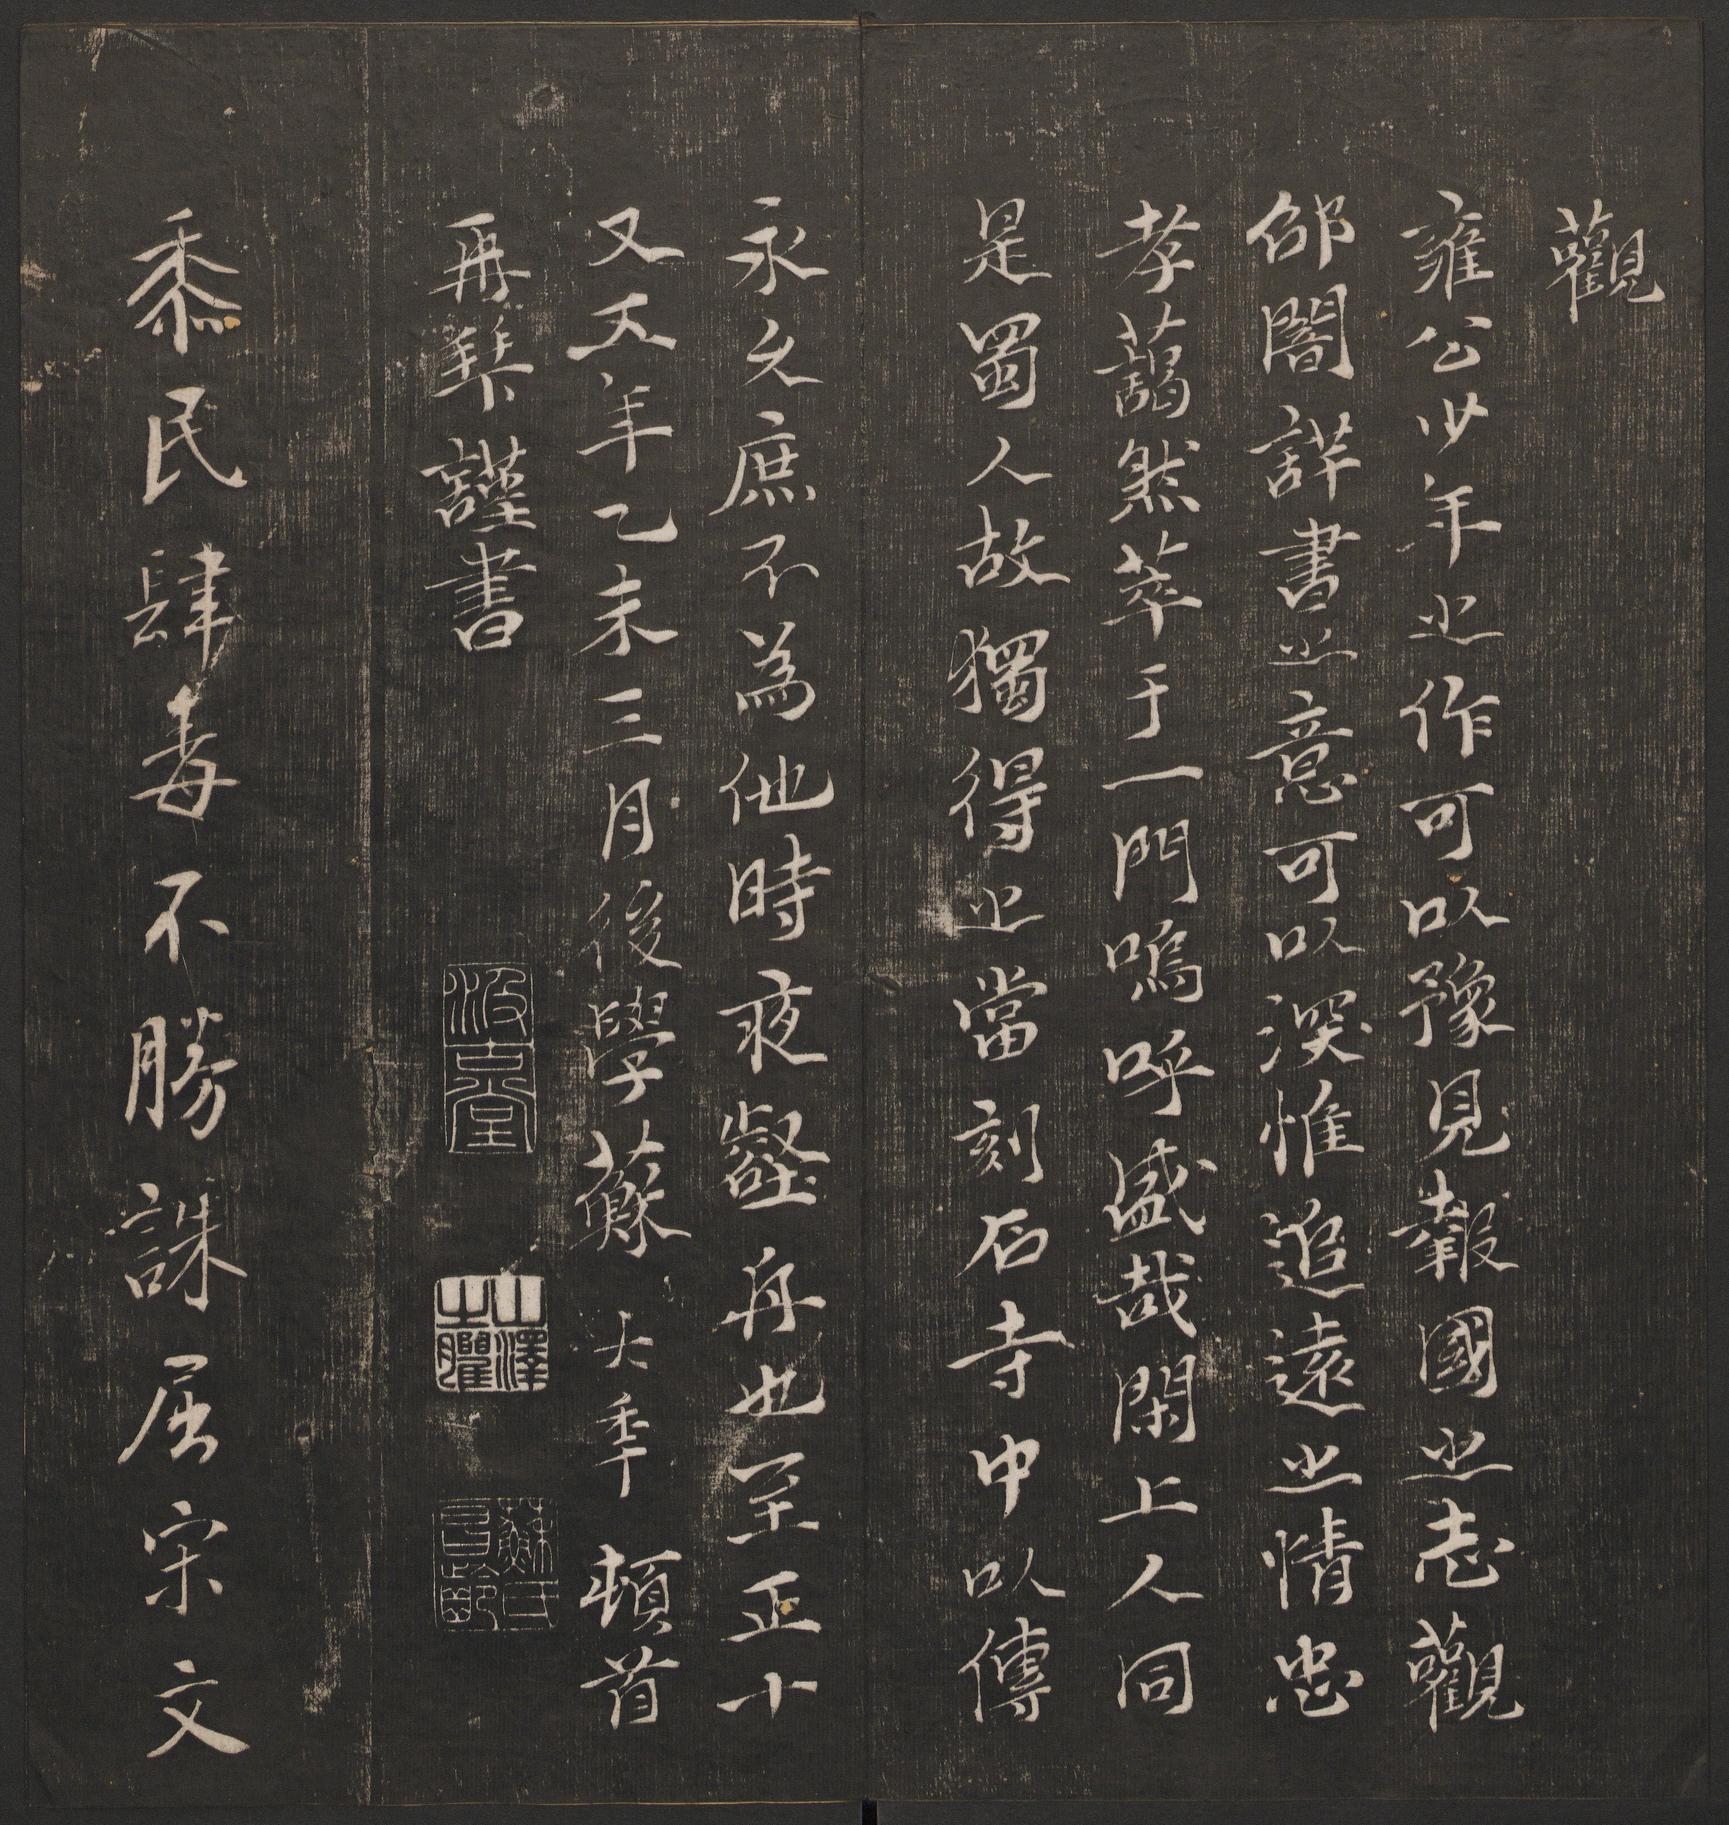 觀
雍公少年之作可以豫見報國之志觀
邵闇詳書之意可以深惟追遠之情忠
孝藹然萃于一門嗚呼盛哉閑上人同
是蜀人故獨得之當刻石寺中以傳
永久庶不為他時夜壑舟也至正十
又五年乙未三月後學蘇大年頓首
再拜謹書
汲古堂
山澤之臞
蘇氏昌齡
黍民肆毒不勝誅屈宋文